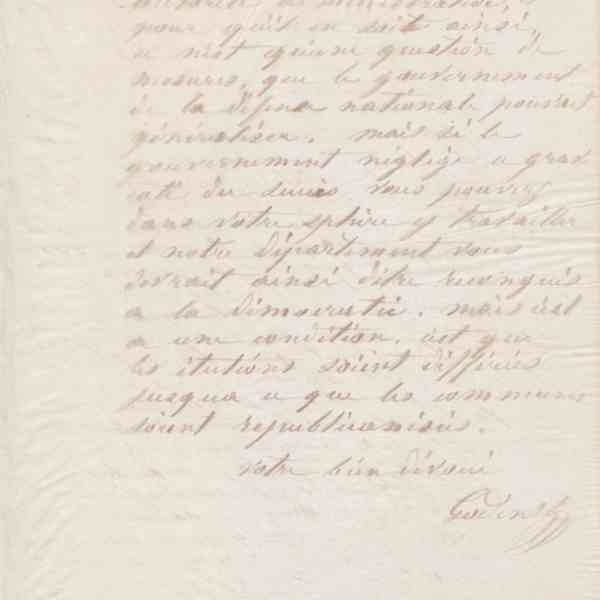 pour qu'il en soit ainsi,
ce n'est qu'une question de
mesures, que le gouvernement
de la défense nationale pourrait
généraliser. mais si le
gouvernement néglige ce grand
coté du devoir vous pouvez
dans votre sphère y travailler
et notre département vous
devrait ainsi d'être reconquis
a la démocratie. mais c'est
a une condition. c'est que
les élections soient différées
jusqu'a ce que les communes
soient républicanisées.
votre bien dévoué
Godin